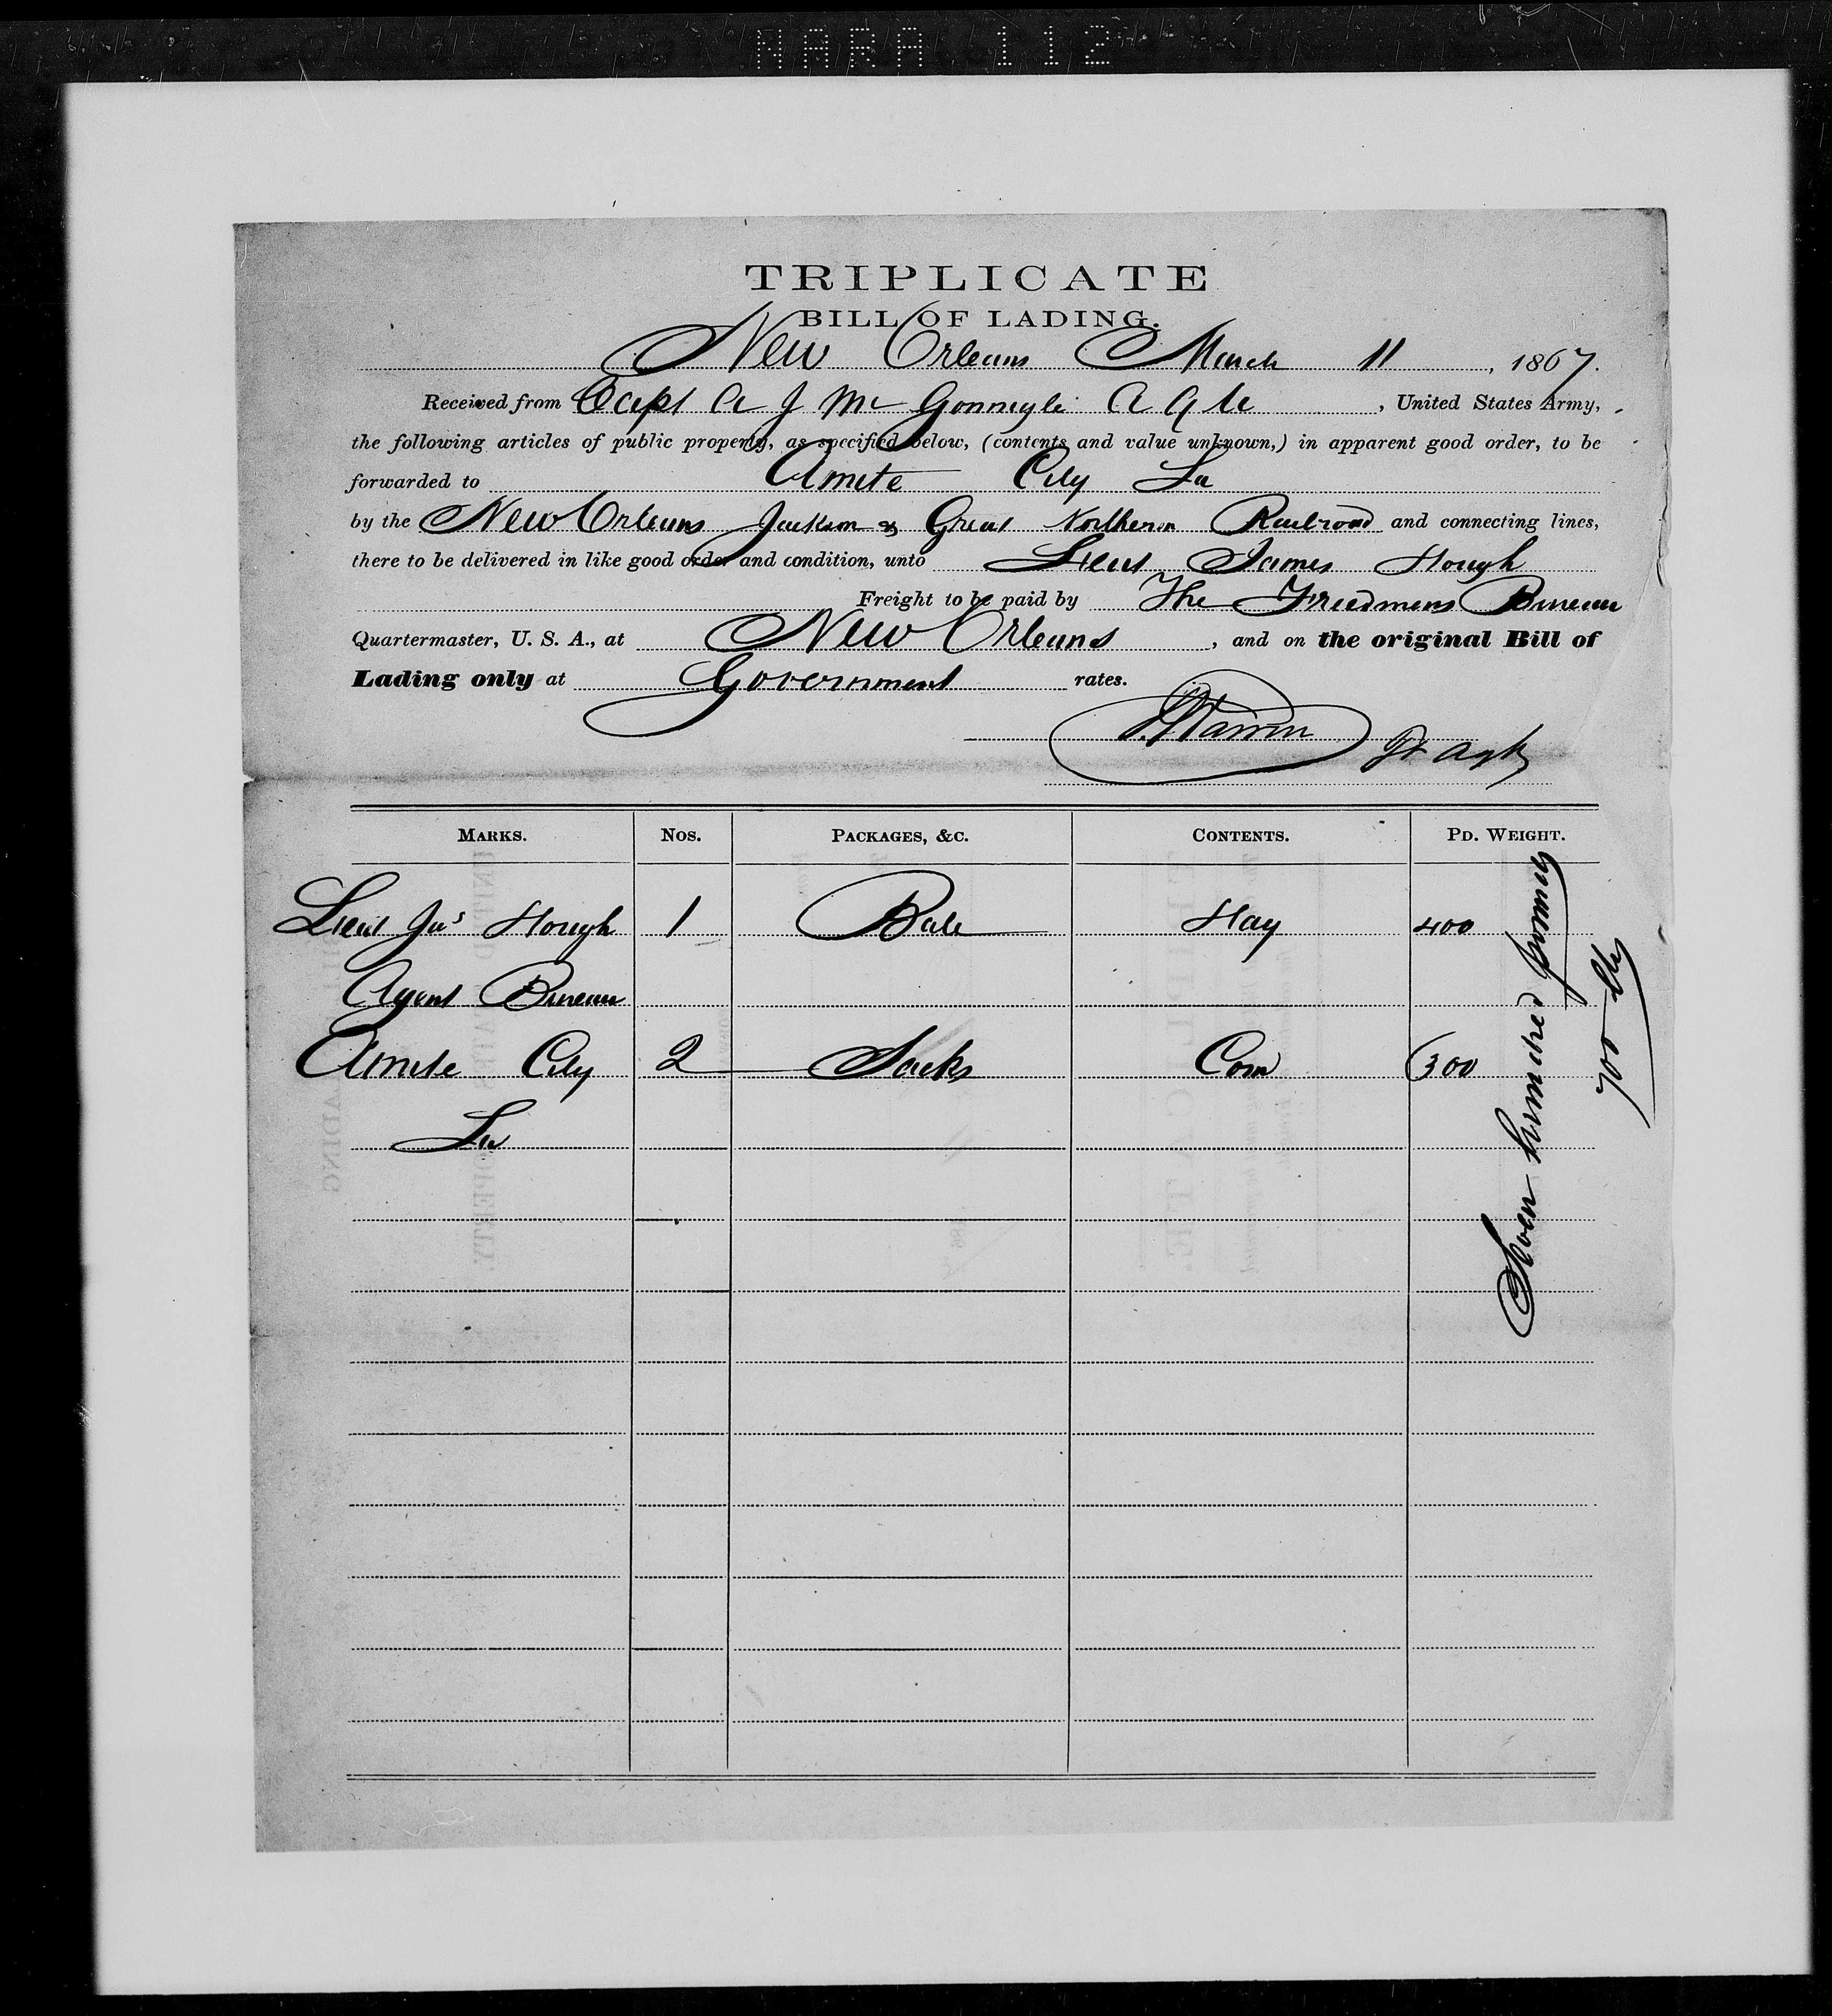 NARA 112
TRIPLICATE
BILL OF LADING.
New Orleans March 11, 1867.
Received from Capt A J McGonnigle A Q M, United States Army,
the following articles of public property, as specified below, (contents and value unknown,) in apparent good order, to be
forwarded to Amite City La
by the New Orleans Jackson & Great Northern Railroad and connecting lines,
there to be delivered in like good order and condition, unto Lieut James Hough
Freight to be paid by The Freedmens Bureau
Quartermaster, U. S. A., at New Orleans, and on the original Bill of
Lading only at Government rates.
Ft Agt
MARKS. NOS. PACKAGES, &C. CONTENTS. PD. WEIGHT.
Lieut Jas Hough 1 Bale Hay 400
Agent Bureau
Amite City 2 Sacks Corn 300
La
Seven hundred pounds
700 lbs